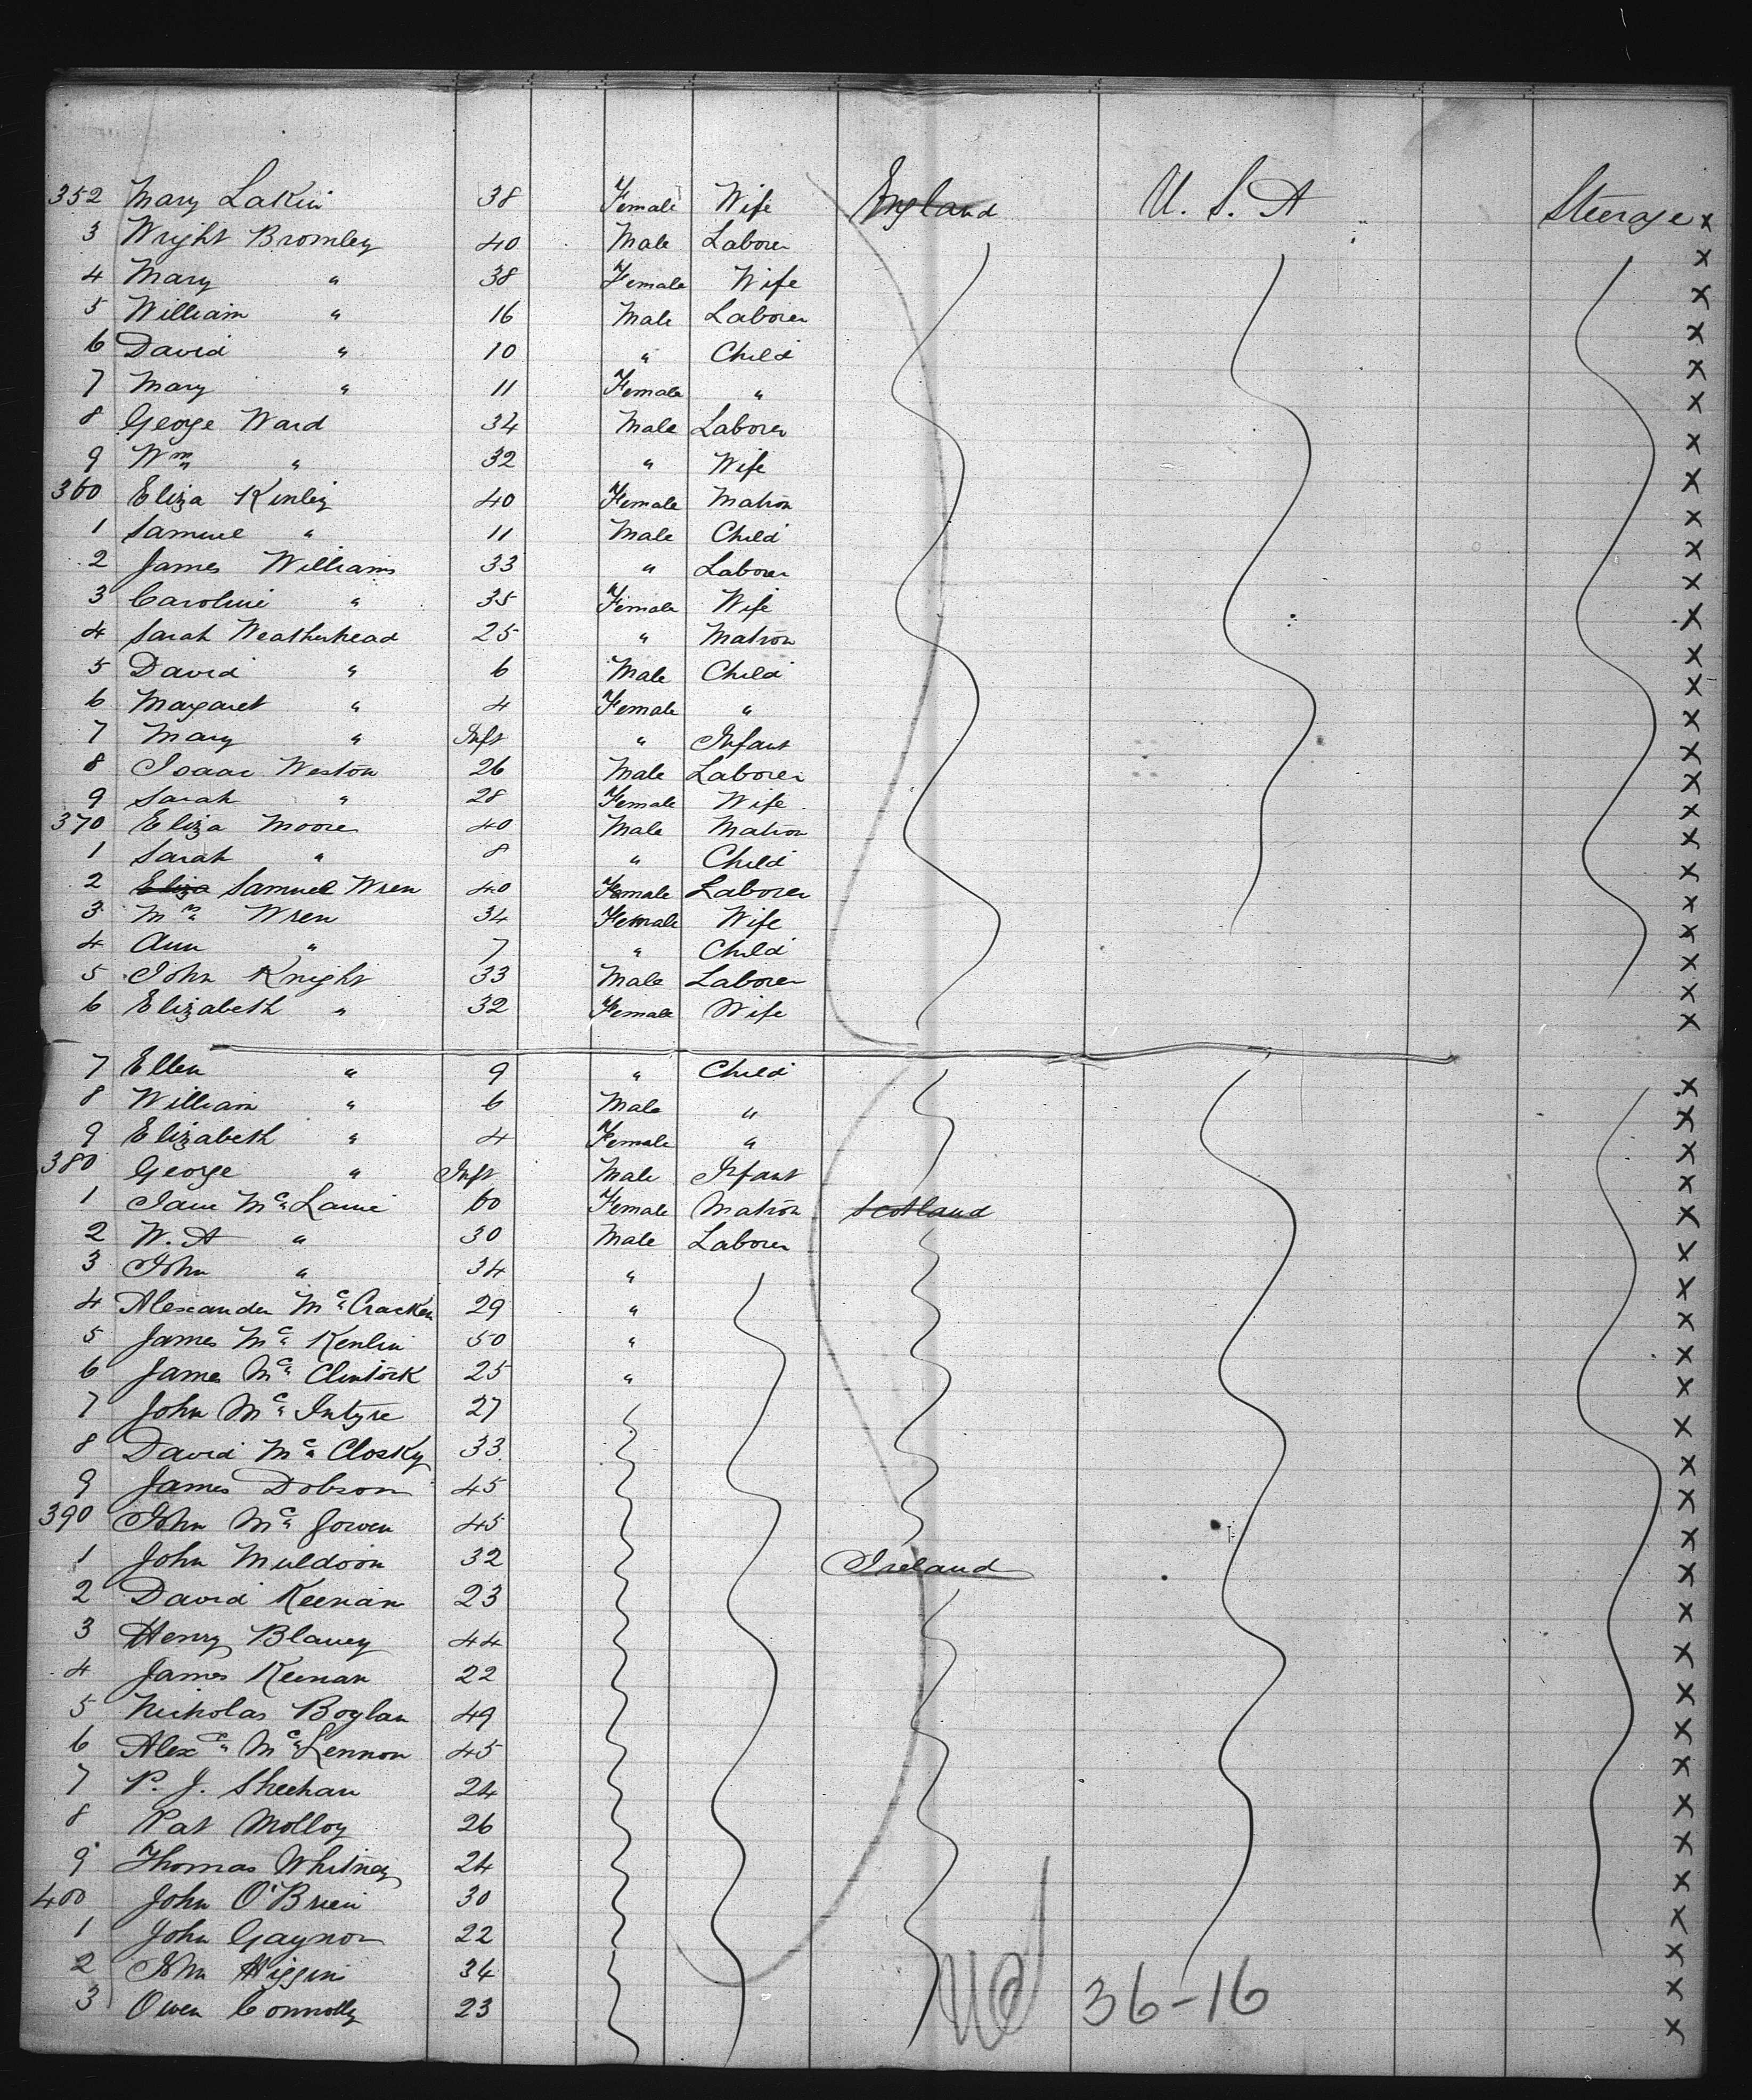 352 Mary Lakin 38 Female Wife England U. S. A Steerage x
3 Wright Bromley 40 Male Laborer x
4 Mary " 38 Female Wife x
5 William " 16 Male Laborer x
6 David " 10 " Child x
7 Mary " 11 Female " x
8 George Ward 34 Male Laborer x
9 Wm " 32 " Wife x
360 Eliza Kinley 40 Female Matron x
1 Samuel " 11 Male Child x
2 James Williams 33 " Laborer x
3 Caroline " 35 Female Wife x
4 Sarah Weatherhead 25 " Matron x
5 David " 6 Male Child x
6 Margaret " 4 Female " x
7 Mary " Inft " Infant x
8 Isaac Weston 26 Male Laborer x
9 Sarah " 28 Female Wife x
370 Eliza Moore 40 Male Matron x
1 Sarah " 8 " Child x
2 Eliza Samuel Wren 40 Female Laborer x
3 Mrs Wren 34 Female Wife x
4 Ann " 7 " Child x
5 John Knight 33 Male Laborer x
6 Elizabeth " 32 Female Wife x
7 Ellen " 9 " Child x
8 William " 6 Male " x
9 Elizabeth " 4 Female " x
380 George " Inft Male Infant x
1 Jane Mc Lanie 60 Female Matron Scotland x
2 W. A " 30 Male Laborer x
3 John " 34 " x
4 Alexander Mc Cracken 29 " x
5 James Mc Kenlin 50 " x
6 James Mc Clintock 25 " x
7 John Mc Intyre 27 x
8 David Mc Closky 33 x
9 James Dobson 45 x
390 John Mc Gowen 45 x
1 John Muldoon 32 Ireland x
2 David Keenan 23 x
3 Henry Blaney 44 x
4 James Keenan 22 x
5 Nicholas Boylan 49 x
6 Alex Mc Lennon 45 x
7 P. J. Sheehan 24 x
8 Pat Molloy 26 x
9 Thomas Whitney 24 x
400 John O'Brien 30 x
1 John Gaynor 22 x
2 John Higgin 34 x
3 Owen Connolly 23 x
36-16